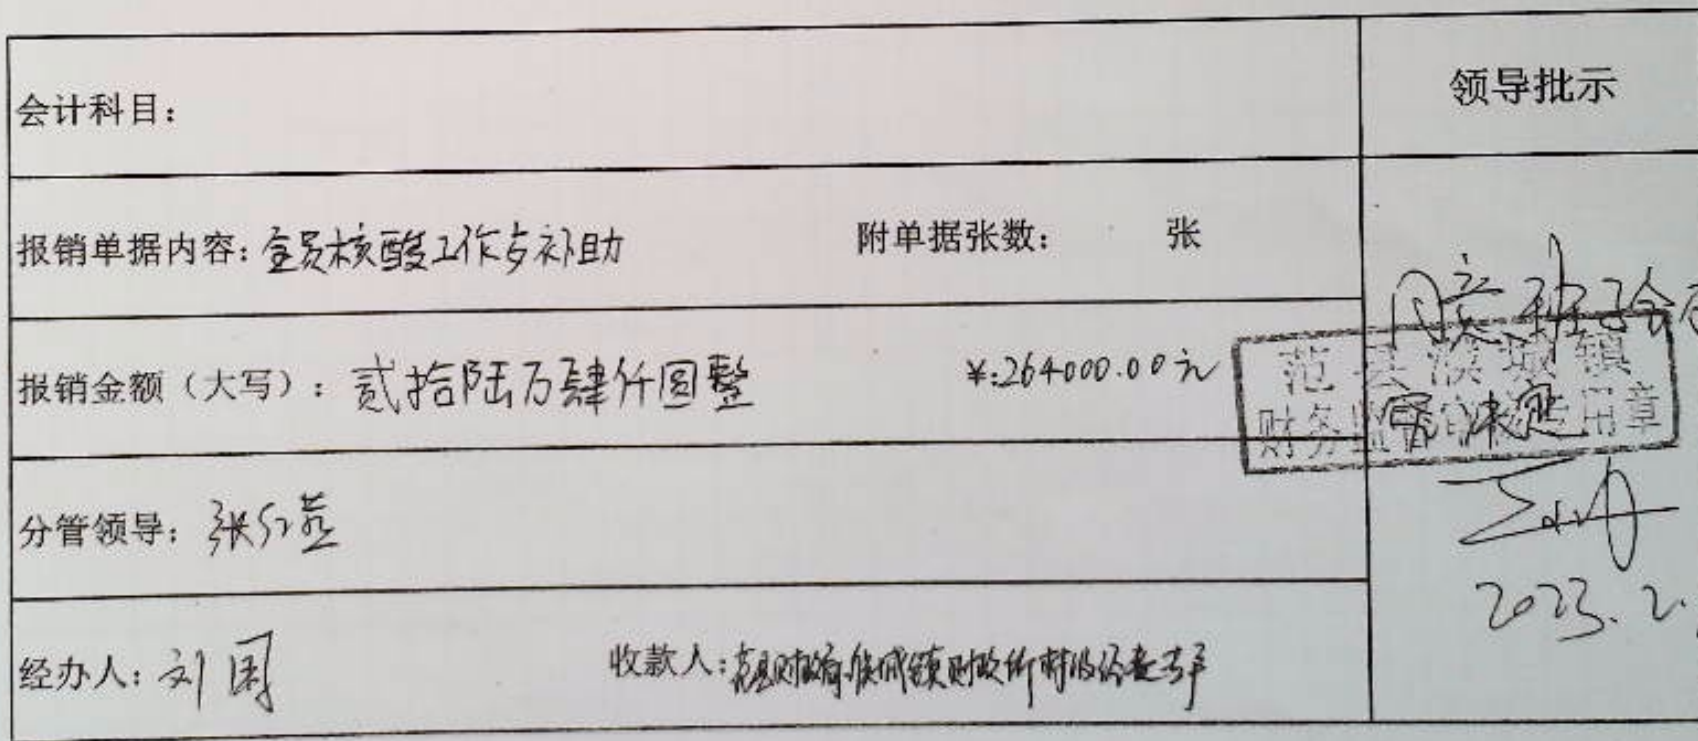 会计科目：
领导批示
报销单据内容：全员核酸工作点补助 附单据张数： 张
报销金额（大写）：贰拾陆万肆仟圆整 ¥:264000.00元
同意.班子会
范县濮城镇
财务监督 专用章
研究决定
分管领导：张红燕
2023.2.
经办人：刘国 收款人：范县财政局濮城镇财政所村级经费专户